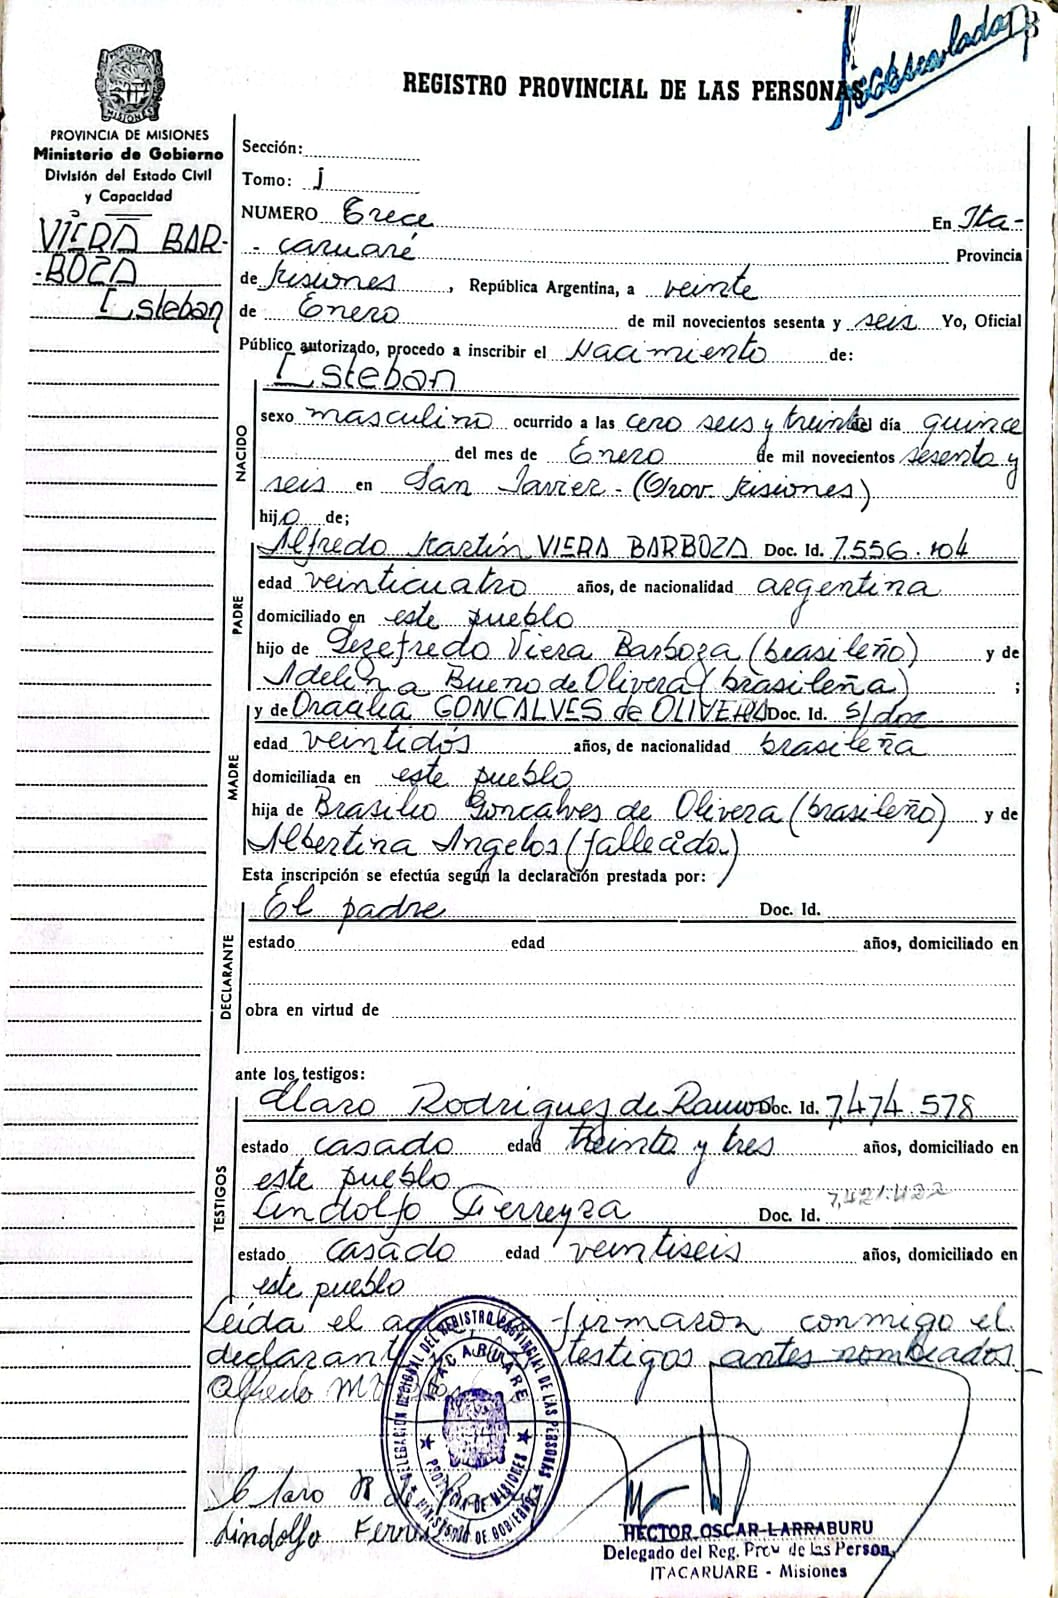 REGISTRO PROVINCIAL DE LAS PERSONAS
PROVINCIA DE MISIONES
Ministerio de Gobierno
División del Estado Civil
y Capacidad
VIERA BAR-
-BOZA
Esteban
Sección:
Tomo: I
NUMERO Trece En Ita-
-caruaré Provincia
de Misiones, República Argentina, a veinte
de Enero de mil novecientos sesenta y seis Yo, Oficial
Público autorizado, procedo a inscribir el Nacimiento de:
NACIDO
Esteban
sexo masculino ocurrido a las cero seis y treinta del día quince
del mes de Enero de mil novecientos sesenta y
seis en San Javier - (Prov. Misiones)
hijo de;
PADRE
Alfredo Martín VIERA BARBOZA Doc. Id. 7.556.104
edad veinticuatro años, de nacionalidad argentina
domiciliado en este pueblo
hijo de Viera Barboza (brasileño) y de
Adelina Bueno de Olivera (brasileña) ;
MADRE
y de GONCALVES de OLIVERA Doc. Id. s/doc
edad veintidós años, de nacionalidad brasileña
domiciliada en este pueblo
hija de Brasilio Goncalves de Olivera (brasileño) y de
Albertina Angelos (fallecida)
Esta inscripción se efectúa según la declaración prestada por:
DECLARANTE
El padre Doc. Id.
estado edad años, domiciliado en
obra en virtud de
ante los testigos:
TESTIGOS
Claro Rodriguez de Ramos Doc. Id. 7.474.578
estado casado edad treinta y tres años, domiciliado en
este pueblo
Lindolfo Ferreyra Doc. Id. 7.421.422
estado casado edad veintiseis años, domiciliado en
este pueblo
Leída el firmaron conmigo el
declarant testigos antes nombrados
Alfredo M V
DELEGACION REGIONAL DEL REGISTRO PROVINCIAL DE LAS PERSONAS
ITACARUARE
PROVINCIA DE MISIONES
MINISTERIO DE GOBIERNO
Claro R de
Lindolfo
HECTOR OSCAR LARRABURU
Delegado del Reg. Prov de las Person.
ITACARUARE - Misiones